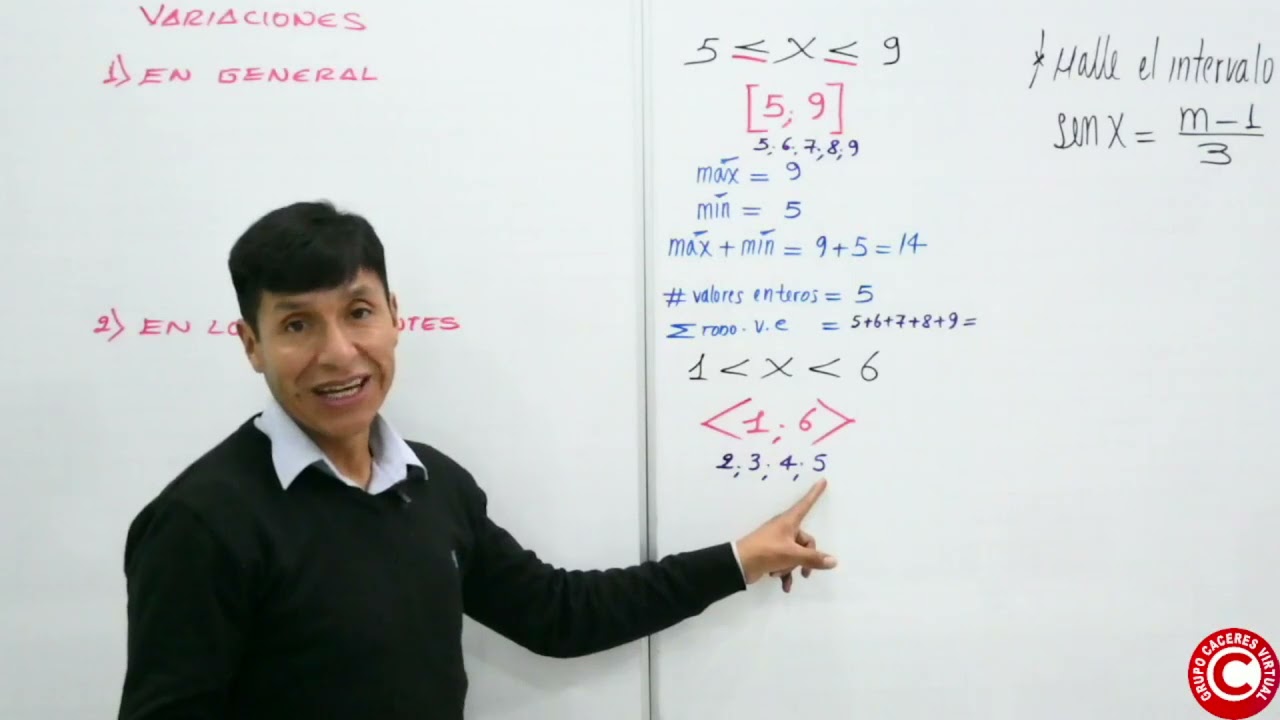 VARIACIONES
1) EN GENERAL
2) EN LO NTES
5 ≤ X ≤ 9
[5; 9]
5; 6; 7; 8; 9
máx = 9
mín = 5
máx + mín = 9 + 5 = 14
# valores enteros = 5
Σ TODO. V. e = 5+6+7+8+9 =
1 < X < 6
<1; 6>
2; 3; 4; 5
* Halle el intervalo
sen X = m - 1
3
GRUPO CACERES VIRTUAL
C